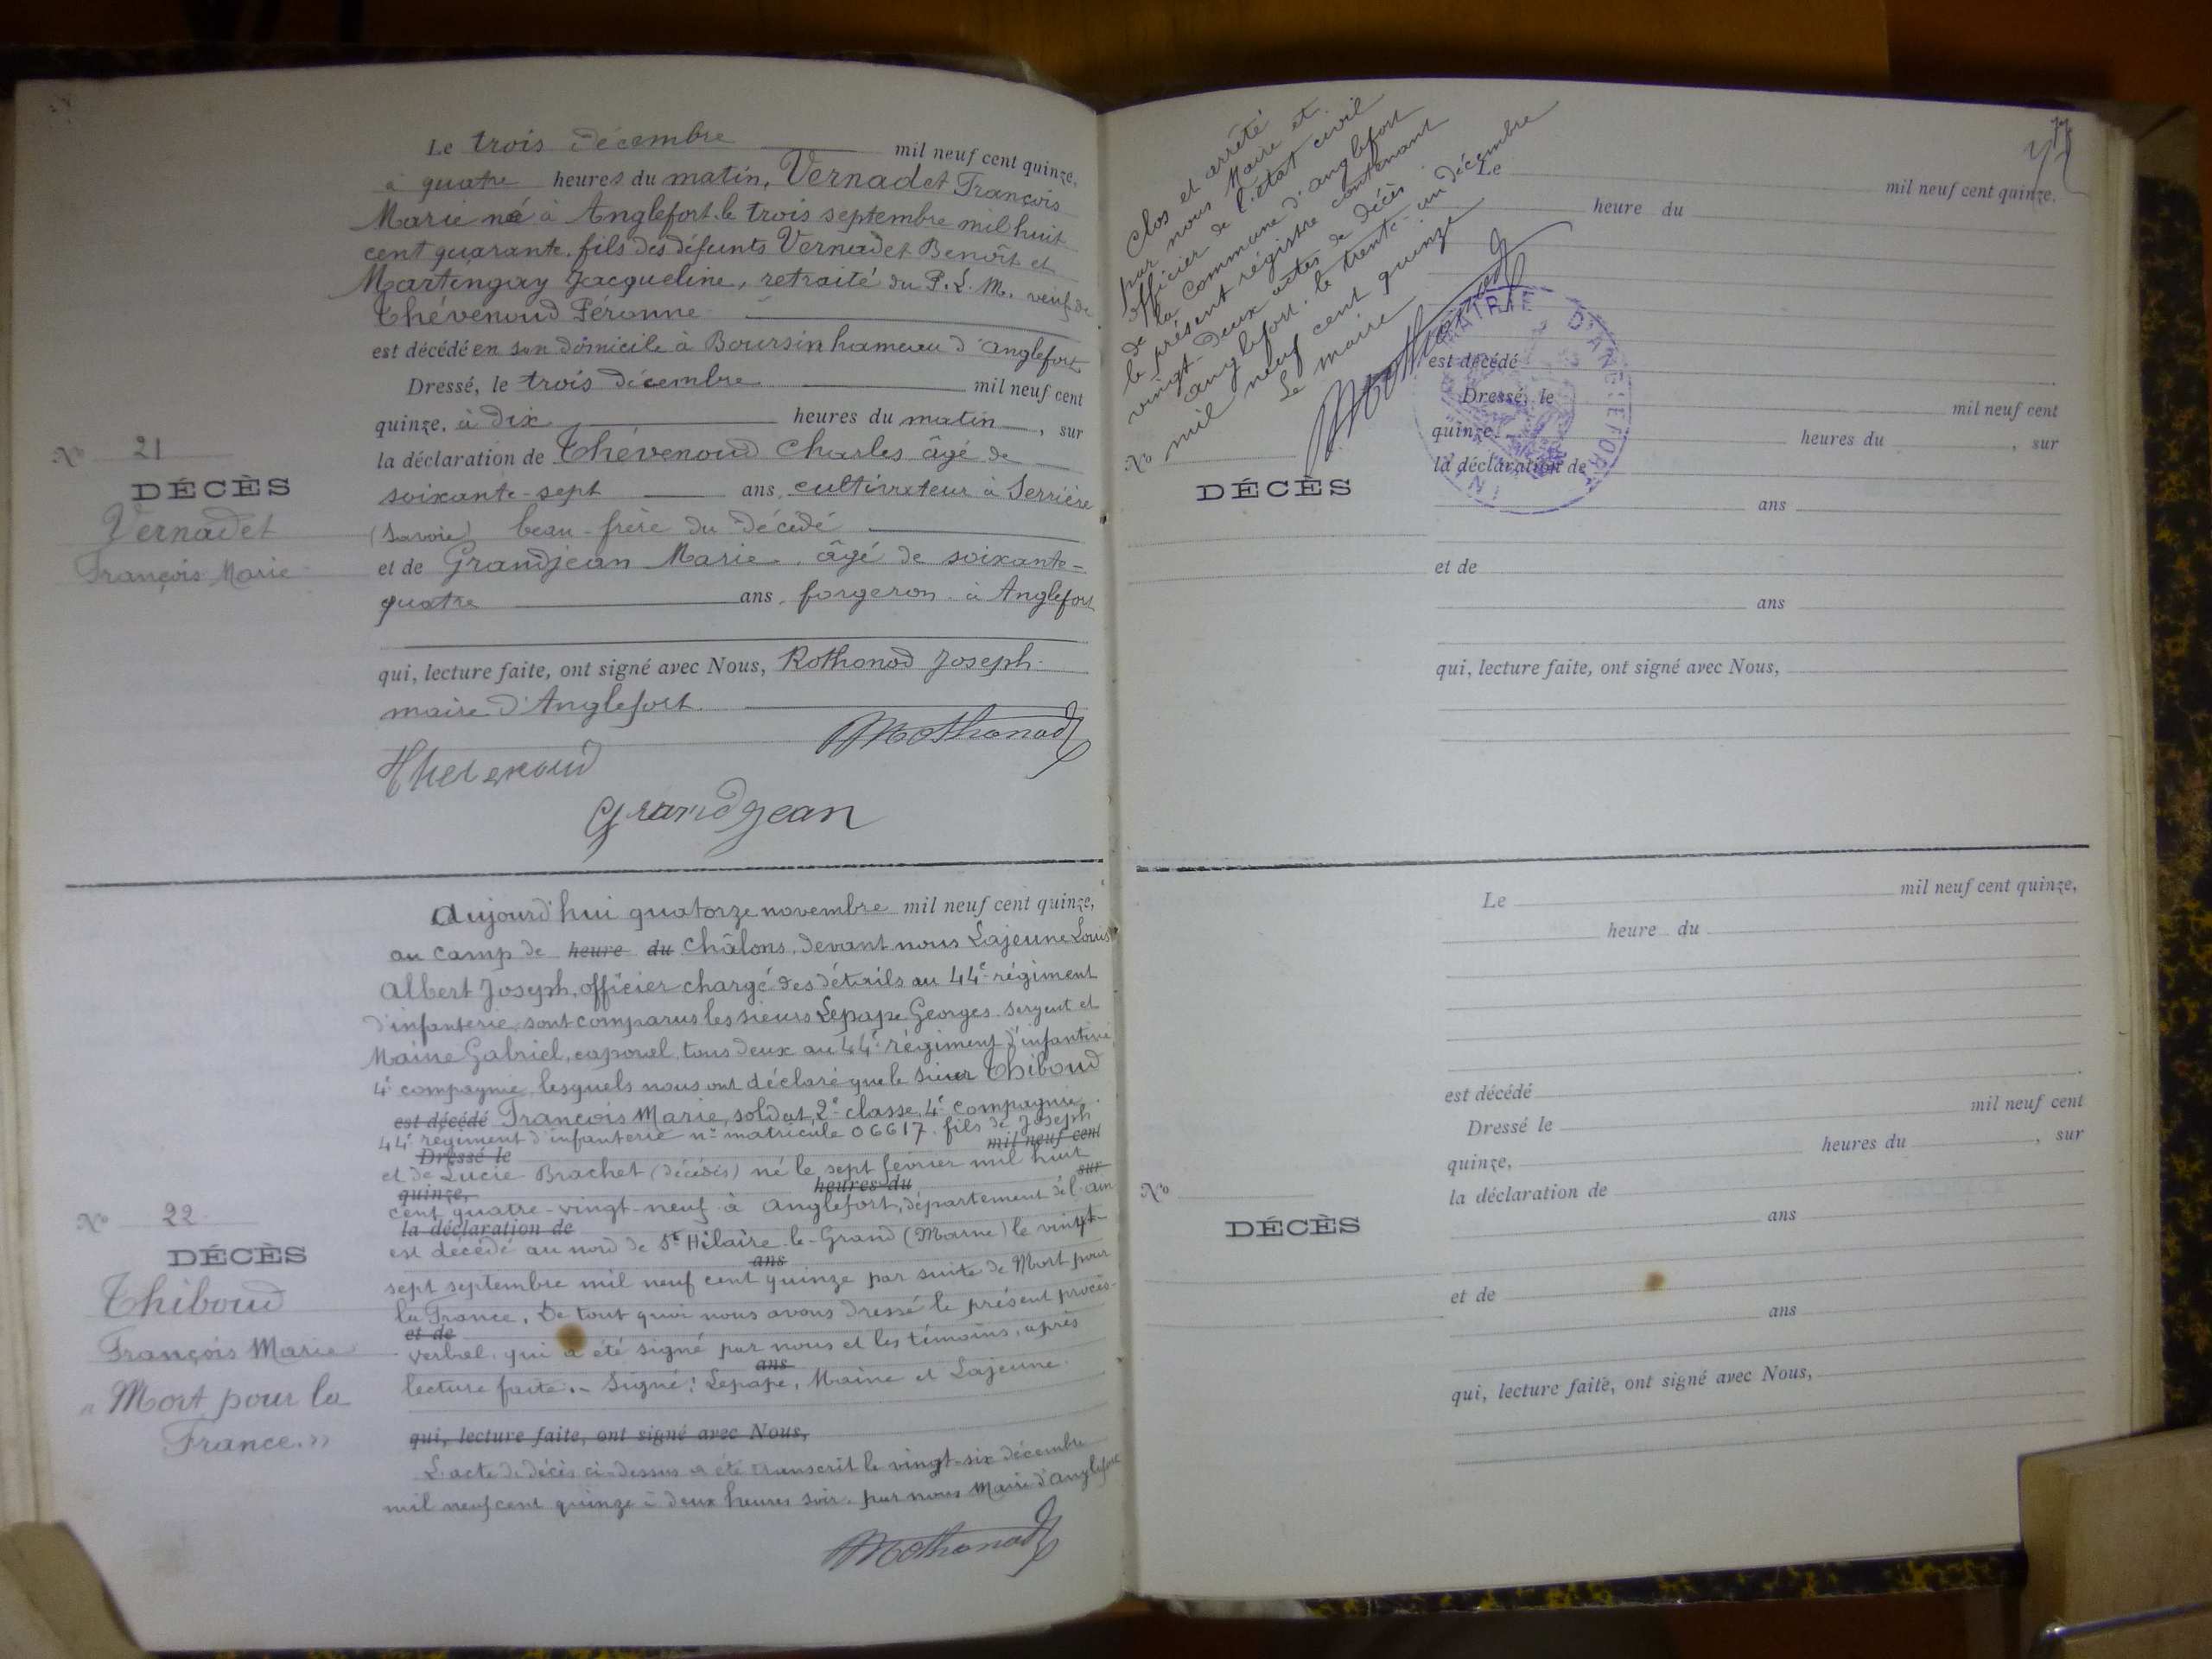 Le trois décembre mil neuf cent quinze,
à quatre heures du matin, Vernadet François
Marie né à Anglefort le trois septembre mil huit
cent quarante, fils des défunts Vernadet Benoît et
Martengay Jacqueline, retraité du P.L.M. veuf de
Thévenoud Péronne
est décédé en son domicile à Boursin hameau d'Anglefort
Dressé, le trois décembre mil neuf cent
quinze, à dix heures du matin, sur
la déclaration de Thévenoud Charles âgé de
soixante-sept ans, cultivateur à Serrière
(Savoie) beau-frère du décédé
et de Grandjean Marie, âgé de soixante-
quatre ans, forgeron à Anglefort
qui, lecture faite, ont signé avec Nous, Rothonod Joseph
maire d'Anglefort.
Rothonod
Thevenoud
Grandjean
No 21
DÉCÈS
Vernadet
François Marie
Aujourd'hui quatorze novembre mil neuf cent quinze,
au camp de heure du Châlons, devant nous Lajeune Louis
Albert Joseph, officier chargé des détails au 44e régiment
d'infanterie, sont comparus les sieurs Lepape Georges sergent et
Maine Gabriel, caporal, tous deux au 44e régiment d'infanterie,
4e compagnie, lesquels nous ont déclaré que le sieur Thiboud
est décédé François Marie, soldat 2e classe, 4e compagnie,
44e régiment d'infanterie n° matricule 06617, fils de Joseph
Dressé le mil neuf cent
et de Lucie Brachet (décédés) né le sept février mil huit
quinze, heures du sur
cent quatre-vingt-neuf à Anglefort, département de l'Ain
la déclaration de
est décédé au nord de St Hilaire-le-Grand (Marne) le vingt-
ans
sept septembre mil neuf cent quinze par suite de Mort pour
la France. De tout quoi nous avons dressé le présent procès-
et de
verbal, qui a été signé par nous et les témoins, après
ans
lecture faite. - Signé: Lepape, Maine et Lajeune.
qui, lecture faite, ont signé avec Nous,
L'acte de décès ci-dessus a été transcrit le vingt-six décembre
mil neuf cent quinze à deux heures soir, par nous Maire d'Anglefort
Rothonod
No 22
DÉCÈS
Thiboud
François Marie
« Mort pour la
France. »
Clos et arrêté
par nous Maire et
officier de l'état civil
de la commune d'Anglefort
le présent régistre contenant
vingt-deux actes de décès.
Anglefort, le trente-un décembre
mil neuf cent quinze
Le maire
Rothonod
MAIRIE D'ANGLEFORT
(AIN)
Le mil neuf cent quinze,
heure du
est décédé
Dressé, le mil neuf cent
quinze, heures du , sur
la déclaration de
ans
et de
ans
qui, lecture faite, ont signé avec Nous,
No
DÉCÈS
Le mil neuf cent quinze,
heure du
est décédé
Dressé le mil neuf cent
quinze, heures du , sur
la déclaration de
ans
et de
ans
qui, lecture faite, ont signé avec Nous,
No
DÉCÈS